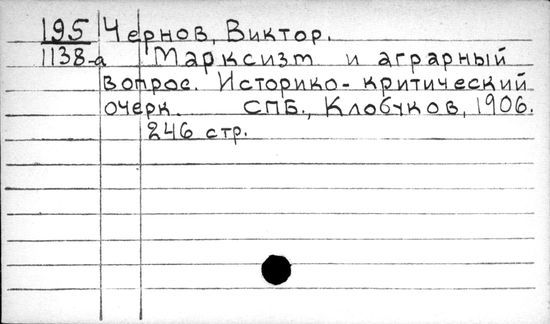 195 Чернов, Виктор.
1138-а Марксизм и аграрный
вопрос. Историко-критический
очерк. СПБ., Клобуков, 1906.
246 стр.